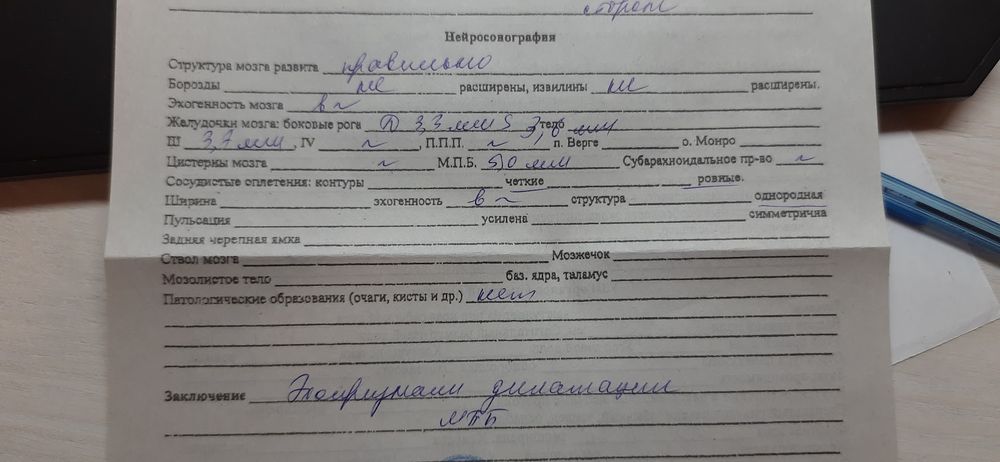 стороне
Нейросонография
Структура мозга развита правильно
Борозды не расширены, извилины не расширены.
Эхогенность мозга в ~
Желудочки мозга: боковые рога 3,3 мм S тело мм
III 3,3 мм, IV ~, П.П.П. ~, п. Верге о. Монро
Цистерны мозга ~ М.П.Б. 5,0 мм Субарахноидальное пр-во ~
Сосудистые оплетения: контуры четкие ровные.
Ширина эхогенность в ~ структура однородная
Пульсация усилена симметрична
Задняя черепная ямка
Ствол мозга Мозжечок
Мозолистое тело баз. ядра, таламус
Патологические образования (очаги, кисты и др.) нет
Заключение Эхопризнаки дилатации
МПБ